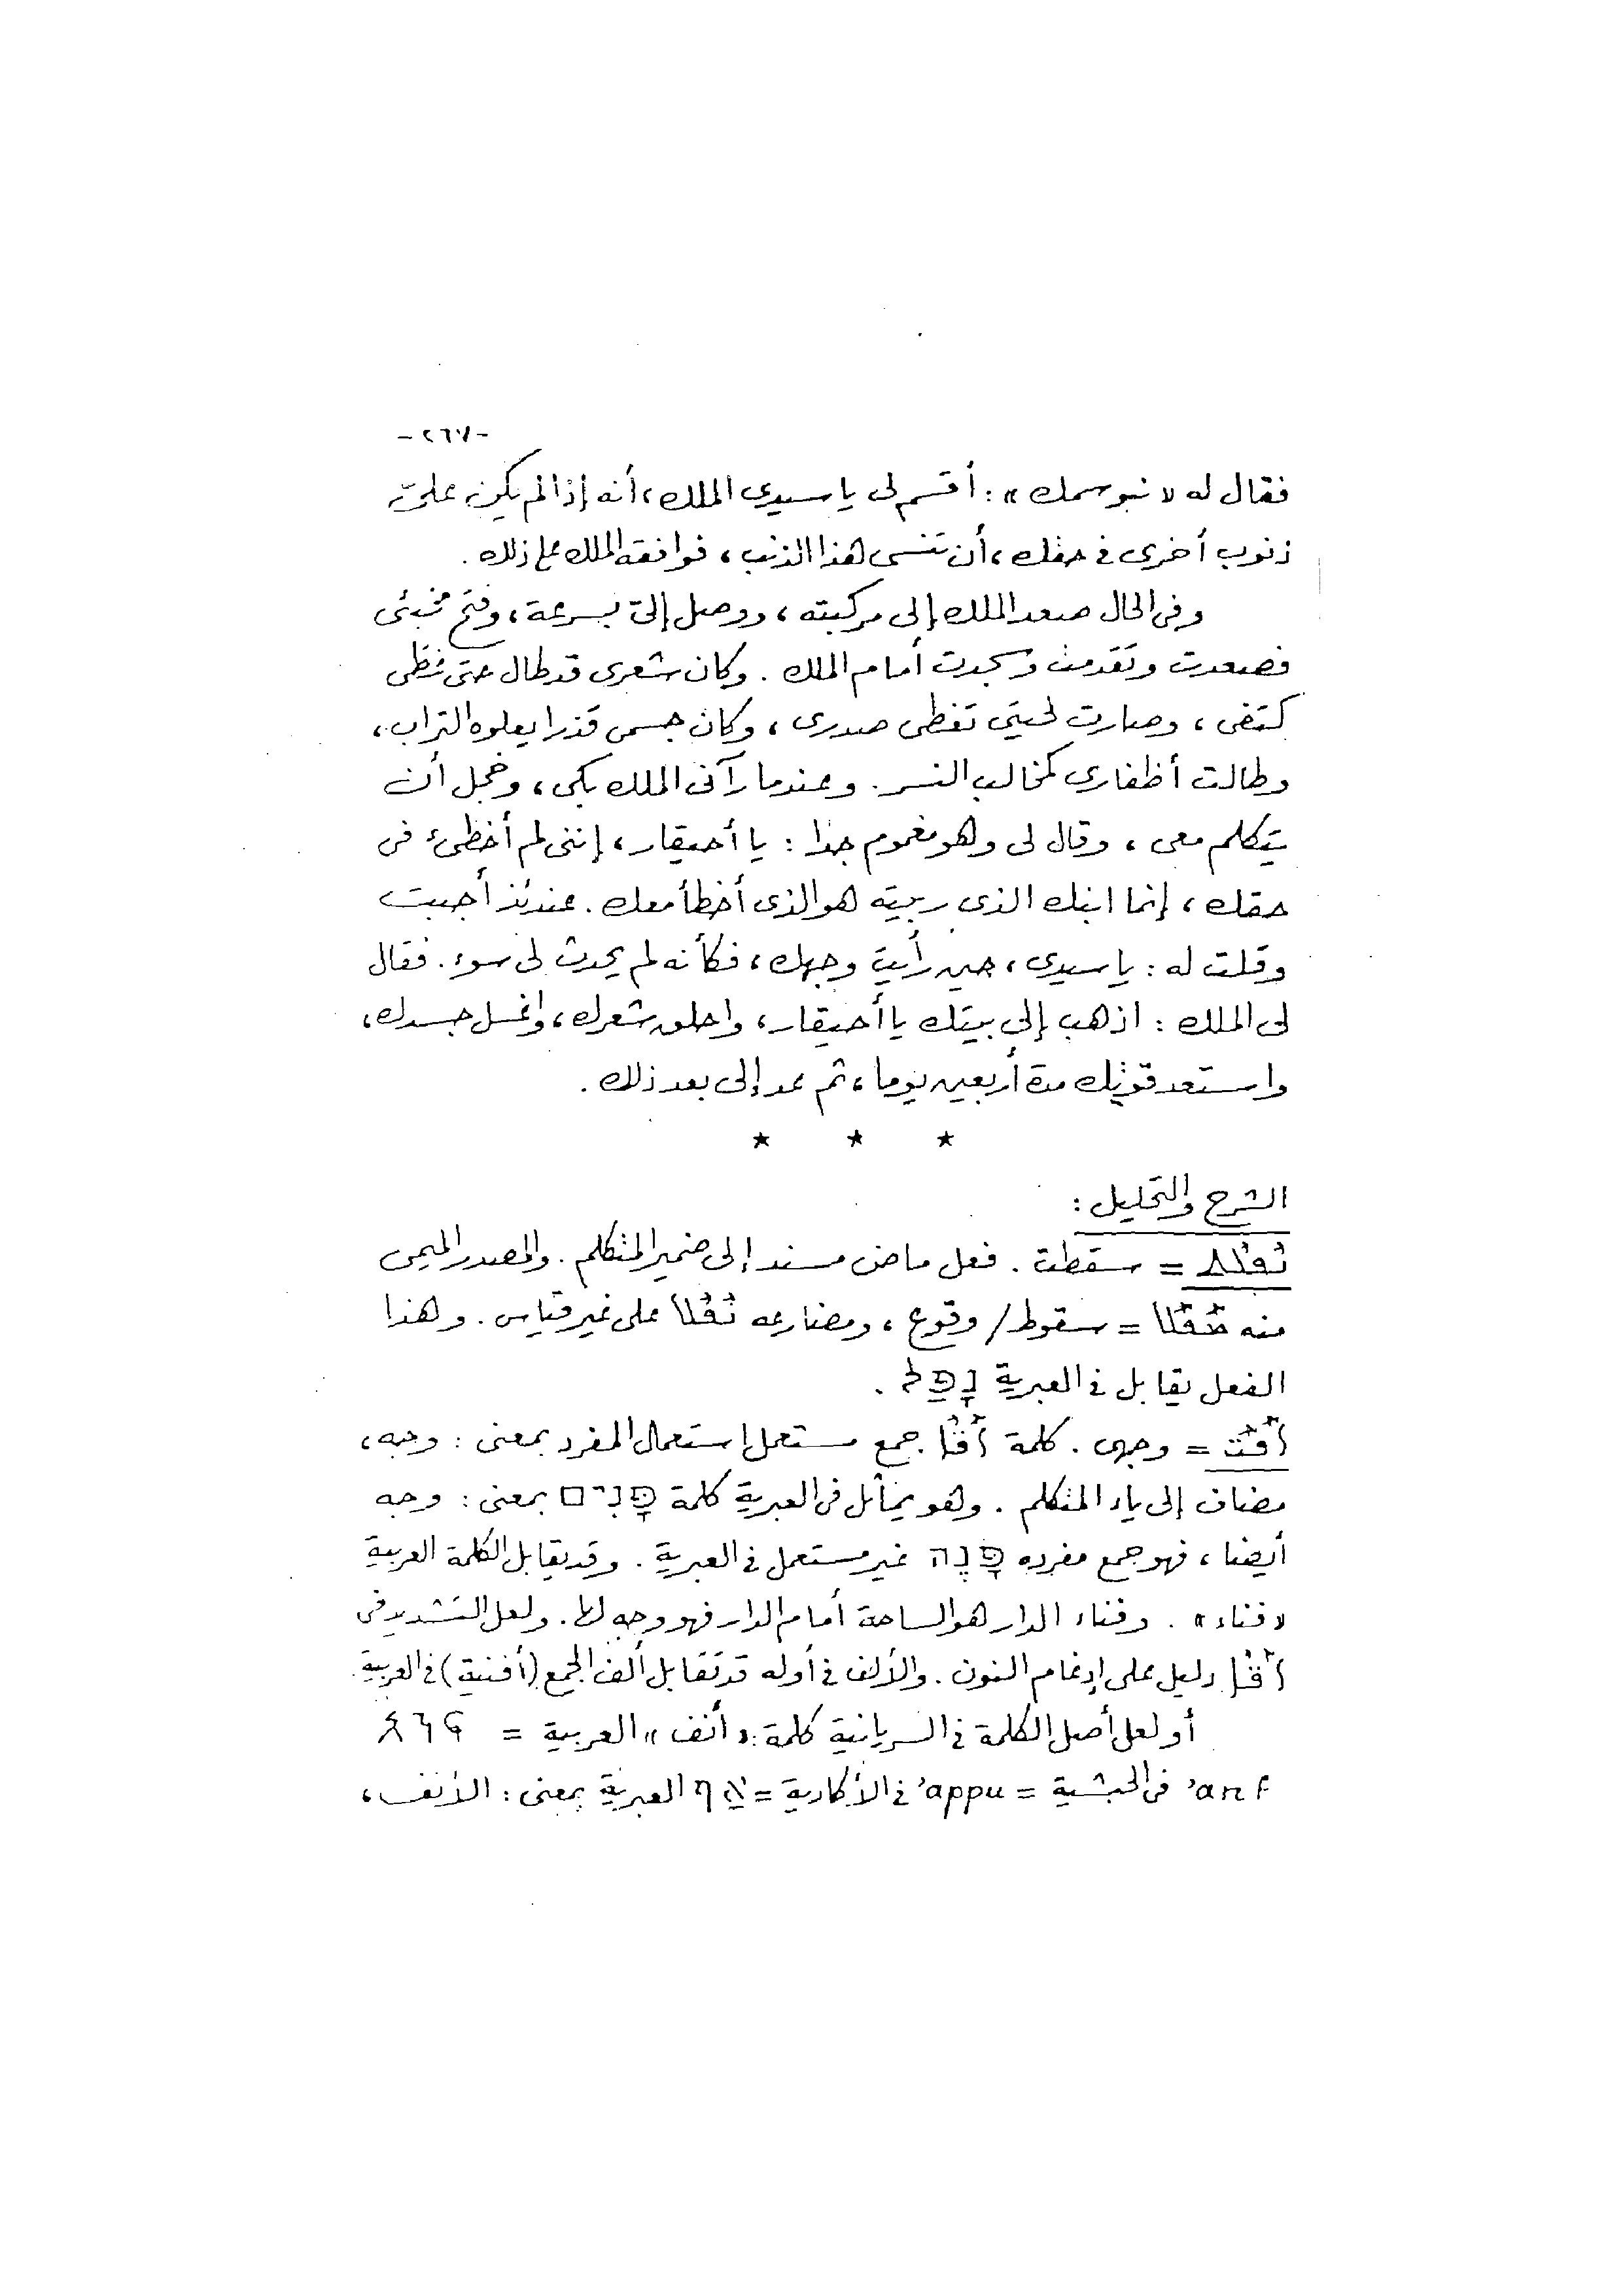 -٢٦٧-
فقال له « نبوسمك » : أقسم لى يا سيدى الملك، أنه إذا لم يكن علىّ
ذنوب أخرى فى حقك، أن تنسى هذا الذنب، فوافقه الملك على ذلك.
وفى الحال صعد الملك إلى مركبته، ووصل إلىّ بسرعة، وفتح مخبئى
فصعدت وتقدمت وسجدت أمام الملك. وكان شعرى قد طال حتى غطى
كتفى، وصارت لحيتى تغطى صدرى، وكان جسمى قذرا يعلوه التراب،
وطالت أظفارى كمخالب النسر. وعندما رآنى الملك بكى، وخجل أن
يتكلم معى، وقال لى وهو مغموم جدا : يا أحيقار، إننى لم أخطئ فى
حقك، إنما ابنك الذى ربيته هو الذى أخطأ معك. عندئذ أجبت
وقلت له : يا سيدى، حين رأيت وجهك، فكأنه لم يحدث لى سوء. فقال
لى الملك : اذهب إلى بيتك يا أحيقار، واحلق شعرك، واغسل جسدك،
واستعد قوتك مدة أربعين يوما، ثم عد إلى بعد ذلك.
★ ★ ★
الشرح والتحليل :
ܢܦܠܬ = سقطت. فعل ماض مسند إلى ضمير المتكلم. والمصدر الميمى
منه ܡܦܠܐ = سقوط / وقوع، ومضارعه على غير قياس. وهذا
الفعل يقابل فى العبرية נָפַל .
ܐܦܝ = وجهى. كلمة ܐܦܐ جمع مستعمل استعمال المفرد بمعنى : وجه،
مضاف إلى ياء المتكلم. وهو يماثل فى العبرية كلمة פָּנִים بمعنى : وجه
أيضا، فهو جمع مفرده פָּנֶה غير مستعمل فى العبرية. وقد يقابل الكلمة العربية
« فناء » . وفناء الدار هو الساحة أمام الدار فهو وجه لها. ولعل التشديد فى
ܐܦܐ دليل على إدغام النون. والألف فى أوله قد تقابل ألف الجمع (أفنية) فى العربية.
أو لعل أصل الكلمة فى السريانية كلمة : « أنف » العربية =
ʼanf فى الحبشية = ʼappu فى الأكادية = אַף العبرية بمعنى : الأنف،